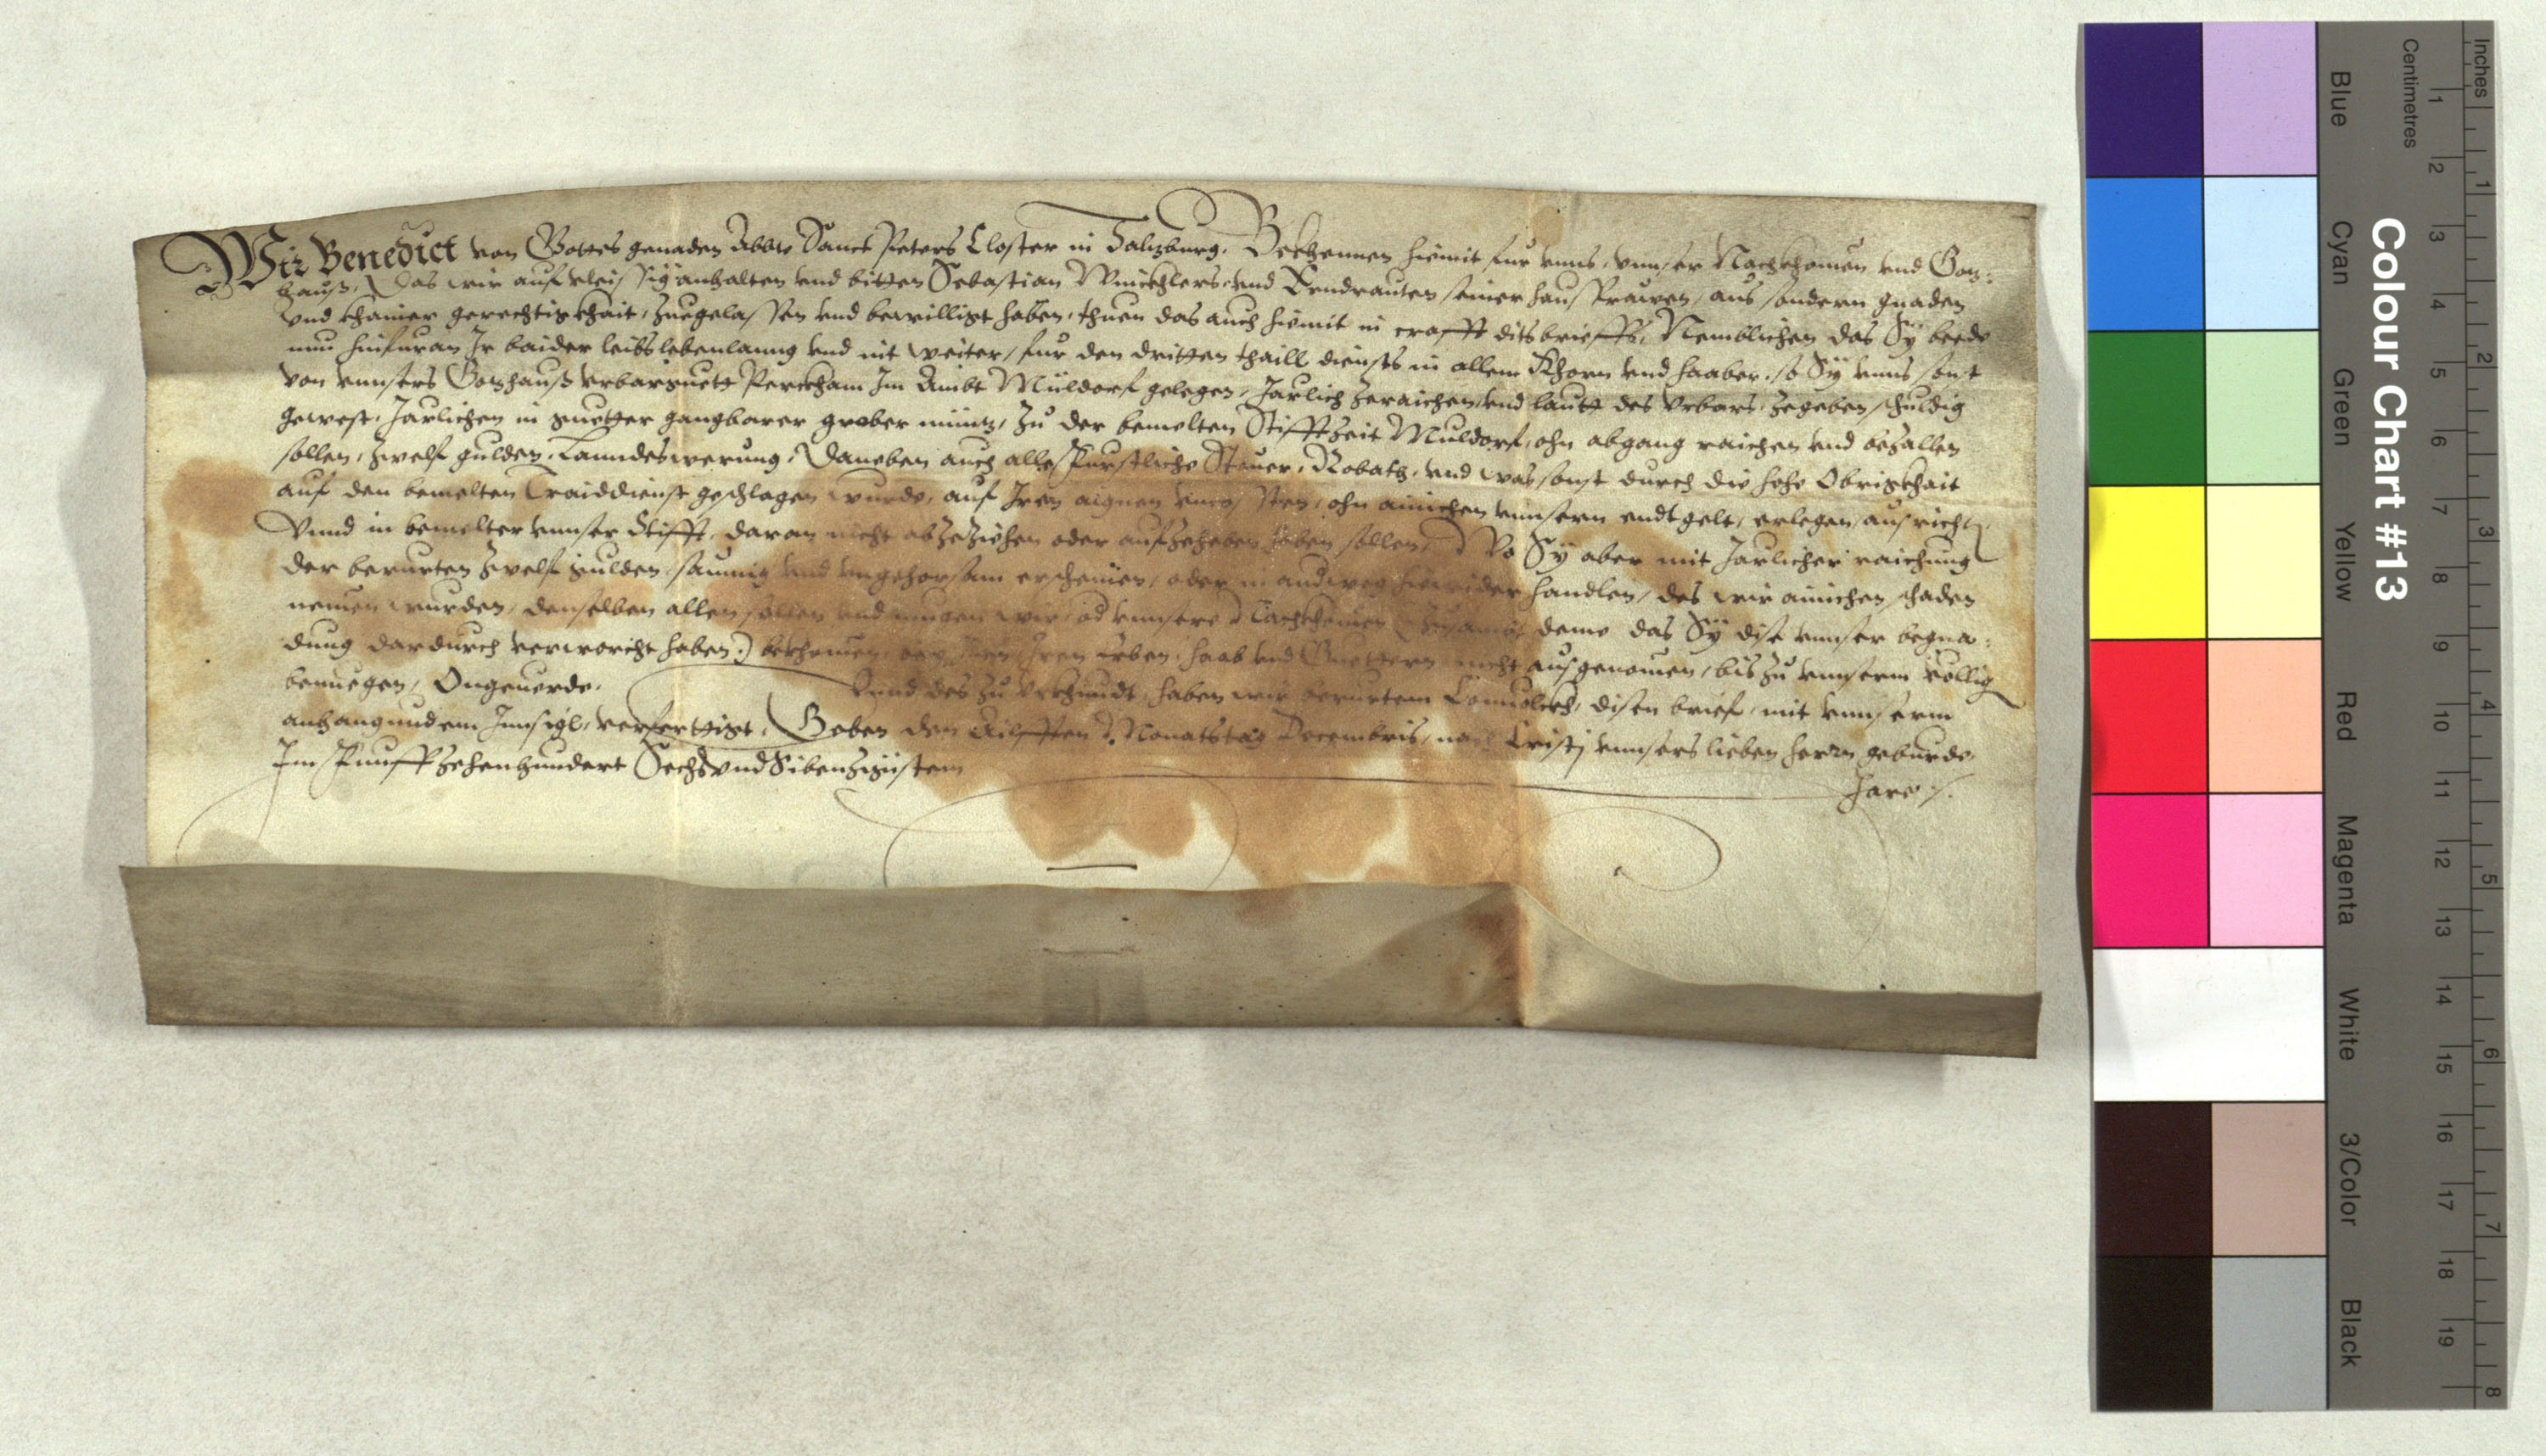 Wir Benedict von Gottes genaden Abbte Sanct Peters Closter in Salzburg, Bekhennen hiemit fur unns, unnser Nachkhomen und Goz=
hauß, Das wir auf vleissig anhalten und bitten Sebastian Winckhlers und Erndrauten seiner hausfrawen, aus sondern gnaden
und khainer gerechtigkhait, zuegelassen und bewilligt haben, thuen das auch hiemit in crafft dits brieffs, Nemblichen das Sÿ beede
nun hinfuran Ir baider leibs lebenlanng und nit weiter, fur den dritten thaill diensts in allem Khorn und haaber, so Sÿ unns sonst
von unnsers Gozhauß Urbarguett Perckham Im Ambt Müldorf gelegen, Järlich zeraichen, und lautt des Urbars, zegeben schuldig
gewest, Järlichen in guetter ganngbarer grober münz, zu der bemelten Stifftzeit Muldorf, ohn abgang raichen und bezallen
sollen, zwelf gulden, Lanndeswerung, Daneben auch alle Furstliche Steuer, Robath, und was sonst durch die hohe Obrigkhait
auf den bemelten Traiddienst geschlagen wurde, auf Iren aignen uncossten, ohn ainichen unnsern endtgelt, erlegen, ausrichten
Unnd in bemelter unnser Stifft, daran nicht abzeziehen oder aufzeheben haben sollen, Wo Sÿ aber mit Järlicher raichung
der berurten zwelf gulden, saumig und ungehorsam erscheinen, oder in andweg hiewider handlen, des wir ainichen schaden
nemen wurden, denselben allen sollen und mugen wir, od unnsere Nachkhomen deme das Sÿ dise unnser begna=
dung dardurch verworcht haben) bekhomen, Iren erben, haab und Guettern nicht ausgenomen, bis zu unnserm völlig
benuegen, Ongeuerde. Unnd des zu Urkhundt, haben wir berurtem disen brief, mit unnserm
anhangundem Innsigl, verferttigt, Geben den Ailfften Monatstag Decembris, nach Cristj unnsers lieben herrn geburde
Im Funffzehenhundert Sechs und Sibenzigistem
Jare.
Colour Chart #13
Blue
Cyan
Green
Yellow
Red
Magenta
White
3/Color
Black
Centimetres
1 2 3 4 5 6 7 8 9 10 11 12 13 14 15 16 17 18 19
Inches
1 2 3 4 5 6 7 8